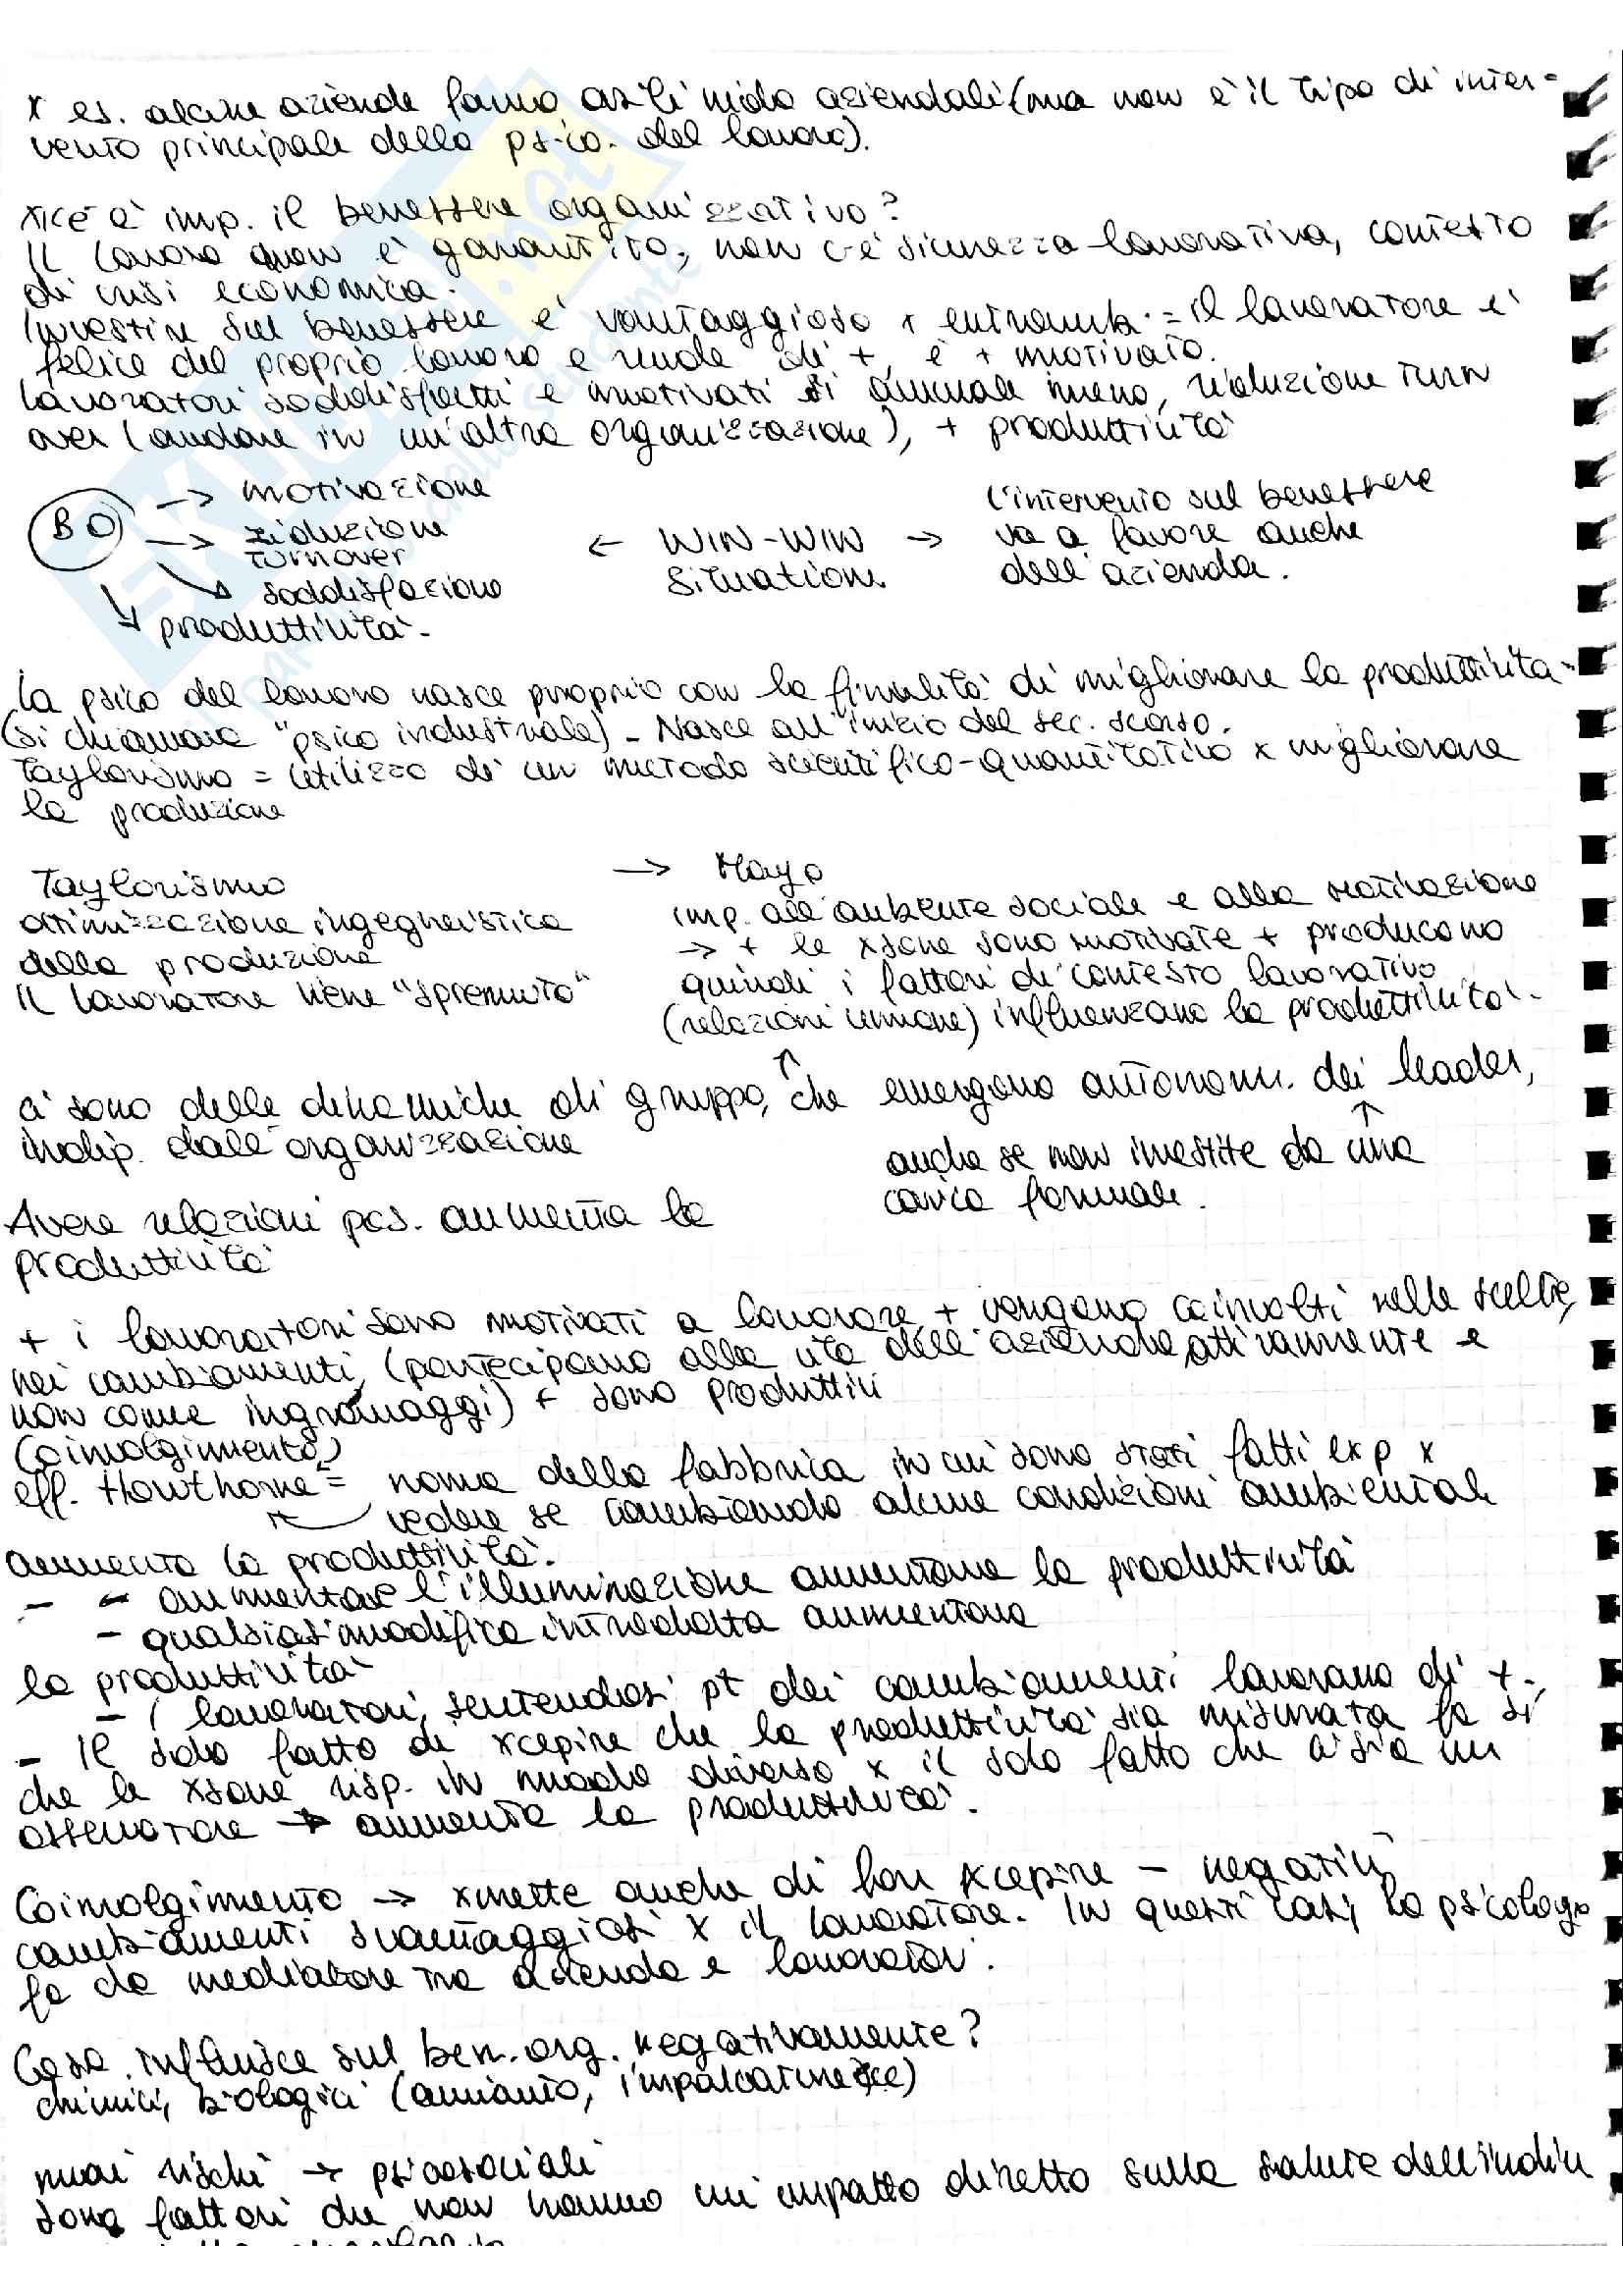 x es. alcune aziende fanno asili nido aziendali (ma non è il tipo di inter-
vento principale della psico. del lavoro).
xké è imp. il benessere organizzativo?
Il lavoro non è garantito, non c'è sicurezza lavorativa, contesto
di crisi economica.
Investire sul benessere è vantaggioso x entramb. = il lavoratore è
felice del proprio lavoro e rende di +, è + motivato.
Lavoratori soddisfatti e motivati si ammala meno, riduzione turn
over (andare in un'altra organizzazione), + produttività
BO → motivazione
→ riduzione
turnover
→ soddisfazione
→ produttività.
← WIN-WIN →
situation
l'intervento sul benessere
va a favore anche
dell'azienda.
La psico del lavoro nasce proprio con la finalità di migliorare la produttività
(si chiamava "psico industriale) - Nasce all'inizio del sec. scorso.
Taylorismo = utilizzo di un metodo scientifico-quantitativo x migliorare
la produzione
Taylorismo
ottimizzazione ingegneristica
della produzione
il lavoratore viene "spremuto"
→ Mayo
imp. all'ambiente sociale e alla motivazione
→ + le xsone sono motivate + producono
quindi i fattori di contesto lavorativo
(relazioni umane) influenzano la produttività.
ci sono delle dinamiche di gruppo, che emergono autonom. dei leader,
indip. dall'organizzazione
anche se non investite da una
carica formale.
Avere relazioni pos. aumenta la
produttività
+ i lavoratori sono motivati a lavorare + vengono coinvolti nelle scelte,
nei cambiamenti, (partecipano alla vita dell'azienda attivamente e
non come ingranaggi) + sono produttivi
(coinvolgimento)
eff. Howthorne = nome della fabbrica in cui sono stati fatti exp x
vedere se cambiando alcune condizioni ambientali
aumenta la produttività.
- - aumentare l'illuminazione aumentava la produttività
- qualsiasi modifica introdotta aumentava
la produttività
- i lavoratori, sentendosi pt dei cambiamenti lavorano di +.
- Il solo fatto di xcepire che la produttività sia misurata fa sì
che le xsone risp. in modo diverso x il solo fatto che ci sia un
osservatore → aumenta la produttività.
Coinvolgimento → xmette anche di far xcepire - negativi
cambiamenti svantaggiosi x il lavoratore. In questi casi, lo psicologo
fa da mediatore tra azienda e lavoratori.
Cosa influisce sul ben. org. negativamente?
chimici, biologici (amianto,
nuovi rischi → psicosociali
sono fattori che non hanno un impatto diretto sulla salute dell'indiv